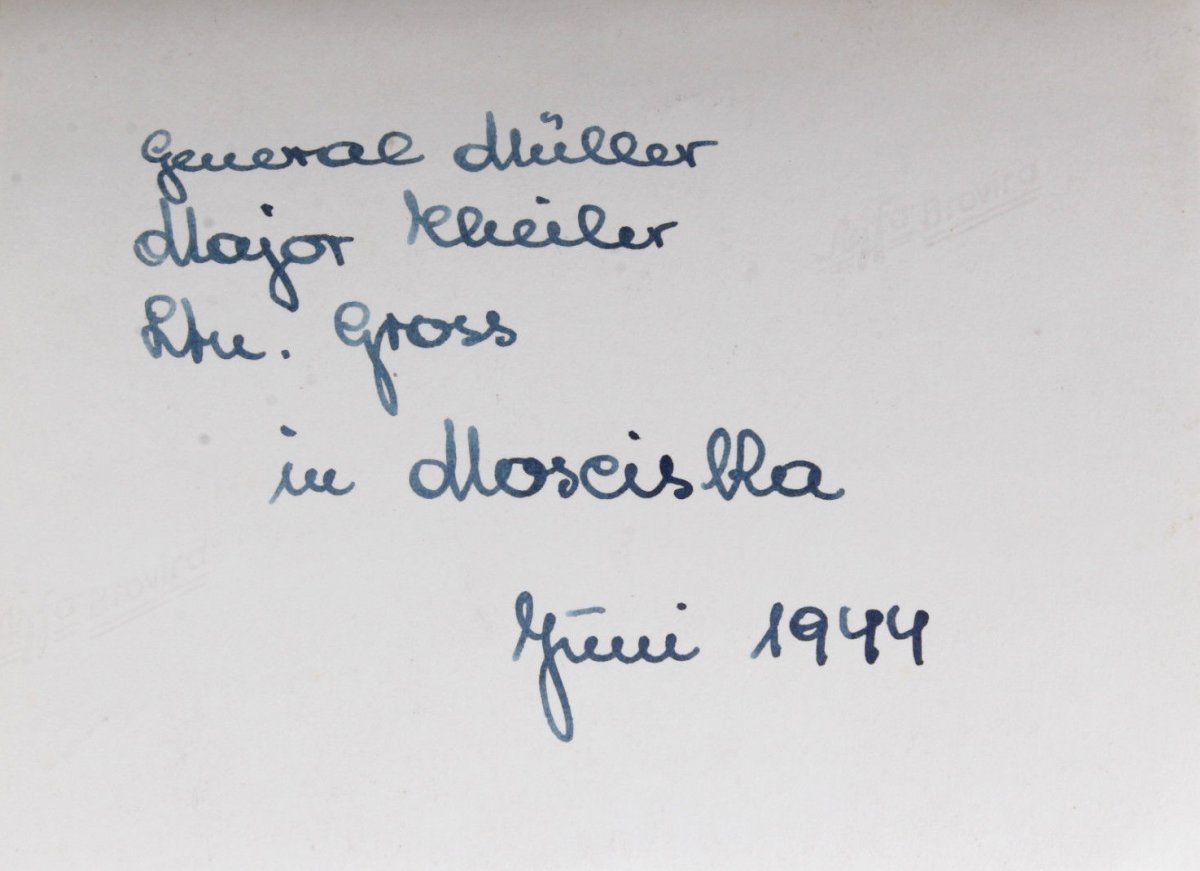 General Müller
Major Kheiler
Ltn. Gross
in Mosciska
Juni 1944
Agfa Brovira
Agfa Brovira